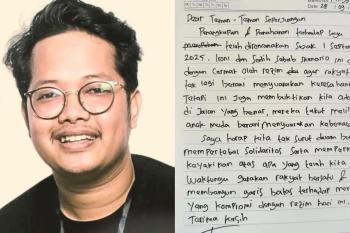 28 / 09
Dear Teman - Teman Seperjuangan
Penangkapan & Penahanan terhadap saya
telah direncanakan sejak 1 Sept
2025. Ironi dan Sedih sebab skenario ini d
dengan cermat oleh rezim agar rakyat
tak lagi berani menyuarakan keresaha
Tetapi ini Juga membuktikan kita ada
di Jalan yang benar, mereka takut melih
anak muda berani menyuarakan kebena
Saya harap kita tak surut dalam
mempertebal Solidaritas serta memper
keyakinan atas apa yang telah kita
Waktunya Gerakan rakyat bersatu &
membangun garis batas terhadap mer
yang kompromi dengan rezim hari ini.
Terima kasih